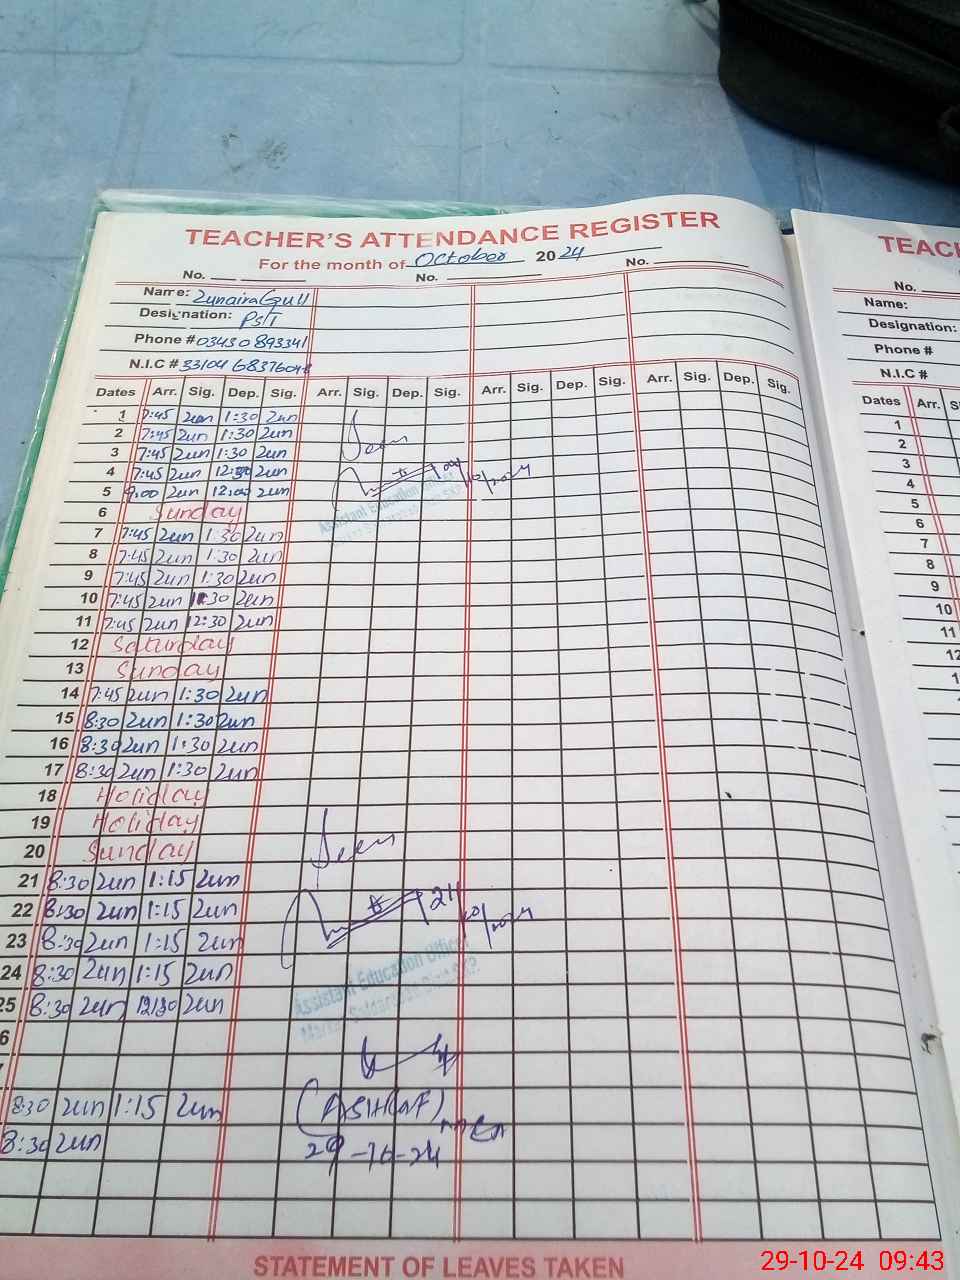 TEACHER'S ATTENDANCE REGISTER
For the month of October 2024
No. No. No.
Name: Zunaira Gull
Designation: PST
Phone # 03430893341
N.I.C #
Dates Arr. Sig. Dep. Sig. Arr. Sig. Dep. Sig. Arr. Sig. Dep. Sig. Arr. Sig. Dep. Sig.
1 7:45 Zun 1:30 Zun
2 7:45 Zun 1:30 Zun
3 7:45 Zun 1:30 Zun
4 7:45 Zun 12:30 Zun
5 9:00 Zun 12:00 Zun
6 Sunday
7 7:45 Zun 1:30 Zun
8 7:45 Zun 1:30 Zun
9 7:45 Zun 1:30 Zun
10 7:45 Zun 1:30 Zun
11 7:45 Zun 12:30 Zun
12 Saturday
13 Sunday
14 7:45 Zun 1:30 Zun
15 8:30 Zun 1:30 Zun
16 8:30 Zun 1:30 Zun
17 8:30 Zun 1:30 Zun
18 Holiday
19 Holiday
20 Sunday
21 8:30 Zun 1:15 Zun
22 8:30 Zun 1:15 Zun
23 8:30 Zun 1:15 Zun
24 8:30 Zun 1:15 Zun
25 8:30 Zun 12:30 Zun
6
8:30 Zun 1:15 Zun
8:30 Zun
Seen
10/2024
Assistant Education Officer
Seen
21/10/2024
Assistant Education Officer
29-10-24
STATEMENT OF LEAVES TAKEN
TEAC
No.
Name:
Designation:
Phone #
N.I.C #
Dates Arr. S
1
2
3
4
5
6
7
8
9
10
11
12
1
29-10-24 09:43